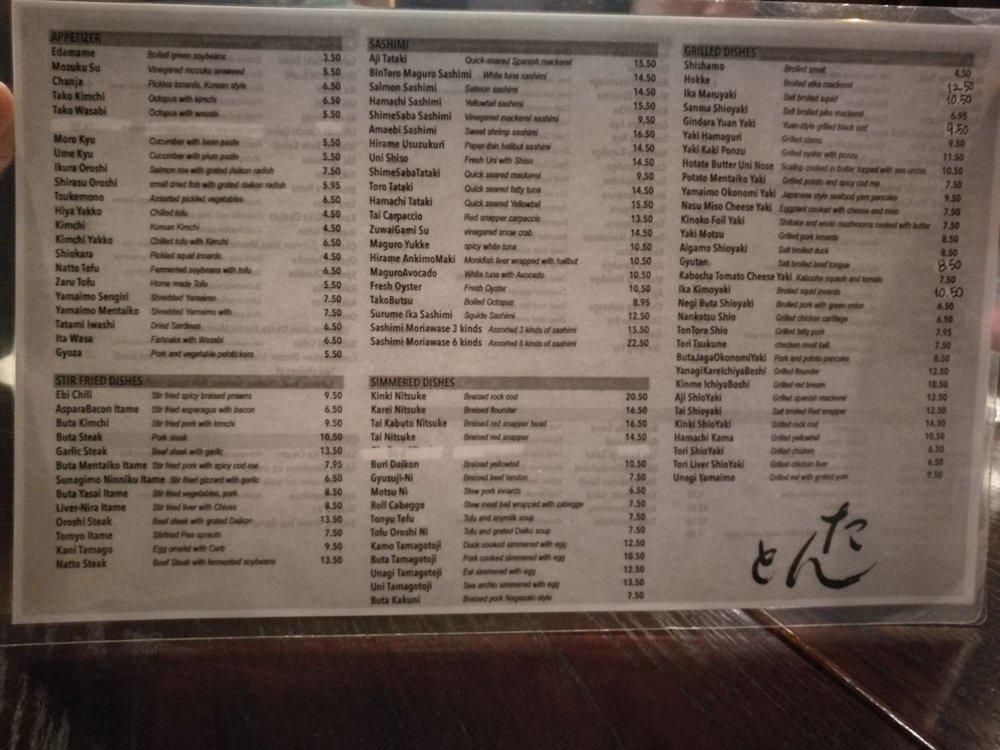 APPETIZER
Edamame Boiled green soybeans 3.50
Mozuku Su Vinegared mozuku seaweed 5.50
Chanja Pickles innards, Korean style 6.50
Tako Kimchi Octopus with kimchi 6.50
Tako Wasabi Octopus with wasabi 5.50
Moro Kyu Cucumber with bean paste 5.50
Ume Kyu Cucumber with plum paste 5.50
Ikura Oroshi Salmon roe with grated daikon radish 7.50
Shirasu Oroshi small dried fish with grated daikon radish 5.95
Tsukemono Assorted pickled vegetables 6.50
Hiya Yakko Chilled tofu 4.50
Kimchi Korean Kimchi 4.50
Kimchi Yakko Chilled tofu with Kimchi 6.50
Shiokara Pickled squid innards 4.50
Natto Tofu Fermented soybeans with tofu 6.50
Zaru Tofu Home made Tofu 5.50
Yamaimo Sengiri Shredded Yamaimo 7.50
Yamaimo Mentaiko Shredded Yamaimo with 7.50
Tatami Iwashi Dried Sardines 6.50
Ita Wasa Fishcake with Wasabi 6.50
Gyoza Pork and vegetable potstickers 5.50
STIR FRIED DISHES
Ebi Chili Stir fried spicy braised prawns 9.50
AsparaBacon Itame Stir fried asparagus with bacon 6.50
Buta Kimchi Stir fried pork with kimchi 9.50
Buta Steak Pork steak 10.50
Garlic Steak Beef steak with garlic 13.50
Buta Mentaiko Itame Stir fried pork with spicy cod roe 7.95
Sunagimo Ninniku Itame Stir fried gizzard with garlic 6.50
Buta Yasai Itame Stir fried vegetables, pork 8.50
Liver-Nira Itame Stir fried liver with Chives 8.50
Oroshi Steak Beef steak with grated Daikon 13.50
Tomyo Itame Stirfried Pea sprouts 7.50
Kani Tamago Egg omelet with Carb 9.50
Natto Steak Beef Steak with fermented soybeans 13.50
SASHIMI
Aji Tataki Quick-seared Spanish mackerel 15.50
BinToro Maguro Sashimi White tuna sashimi 14.50
Salmon Sashimi Salmon sashimi 14.50
Hamachi Sashimi Yellowtail sashimi 15.50
ShimeSaba Sashimi Vinegared mackerel sashimi 9.50
Amaebi Sashimi Sweet shrimp sashimi 16.50
Hirame Usuzukuri Paper-thin halibut sashimi 14.50
Uni Shiso Fresh Uni with Shiso 14.50
ShimeSabaTataki Quick seared mackerel 9.50
Toro Tataki Quick seared fatty tuna 14.50
Hamachi Tataki Quick seared Yellowtail 15.50
Tai Carpaccio Red snapper carpaccio 13.50
ZuwaiGami Su vinegared snow crab 14.50
Maguro Yukke spicy white tuna 10.50
Hirame AnkimoMaki Monkfish liver wrapped with halibut 10.50
MaguroAvocado White tuna with Avocado 10.50
Fresh Oyster Fresh Oyster 10.50
TakoButsu Boiled Octopus 8.95
Surume Ika Sashimi Squide Sashimi 12.50
Sashimi Moriawase 3 kinds Assorted 3 kinds of sashimi 15.50
Sashimi Moriawase 6 kinds Assorted 6 kinds of sashimi 22.50
SIMMERED DISHES
Kinki Nitsuke Braised rock cod 20.50
Karei Nitsuke Braised flounder 16.50
Tai Kabuto Nitsuke Braised red snapper head 16.50
Tai Nitsuke Braised red snapper 14.50
Buri Daikon Braised yellowtail 10.50
Gyusuji-Ni Braised beef tendon 7.50
Motsu Ni Stew pork innards 6.50
Roll Cabegge Stew meat ball wrapped with cabegge 7.50
Tonyu Tofu Tofu and soymilk soup 7.50
Tofu Oroshi Ni Tofu and grated Daiko soup 7.50
Kamo Tamagotoji Duck cooked simmered with egg 12.50
Buta Tamagotoji Pork cooked simmered with egg 10.50
Unagi Tamagotoji Eel simmered with egg 12.50
Uni Tamagotoji Sea urchin simmered with egg 13.50
Buta Kakuni Braised pork Nagasaki-style 7.50
GRILLED DISHES
Shishamo Broiled smelt 4.50
Hokke Broiled atka mackerel 12.50
Ika Maruyaki Salt broiled squid 10.50
Sanma Shioyaki Salt broiled pike mackerel 6.95
Gindara Yuan Yaki Yuan-style grilled black cod 9.50
Yaki Hamaguri Grilled clams 9.50
Yaki Kaki Ponzu Grilled oyster with ponzu 11.50
Hotate Butter Uni Nose Scallop cooked in butter topped with sea urchin 10.50
Potato Mentaiko Yaki Grilled potato and spicy cod roe 7.50
Yamaimo Okonomi Yaki Japanese style seafood yam pancake 9.50
Nasu Miso Cheese Yaki Eggplant cooked with cheese and miso 7.50
Kinoko Foil Yaki Shiitake and enoki mushrooms cooked with butter 7.50
Yaki Motsu Grilled pork innards 8.50
Aigamo Shioyaki Salt broiled duck 8.50
Gyutan Salt broiled beef tongue 8.50
Kabocha Tomato Cheese Yaki Kabocha squash and tomato 7.50
Ika Kimoyaki Broiled squid innards 10.50
Negi Buta Shioyaki Broiled pork with green onion 6.50
Nankotsu Shio Grilled chicken cartilage 6.50
TonToro Shio Grilled fatty pork 7.95
Tori Tsukune chicken meat ball 7.50
ButaJagaOkonomiYaki Pork and potato pancake 8.50
YanagiKareIchiyaBoshi Grilled flounder 12.50
Kinme IchiyaBoshi Grilled red bream 10.50
Aji ShioYaki Grilled spanish mackerel 13.50
Tai Shioyaki Salt broiled Red snapper 12.50
Kinki ShioYaki Grilled rock cod 14.50
Hamachi Kama Grilled yellowtail 10.50
Tori ShioYaki Grilled chicken 6.50
Tori Liver ShioYaki Grilled chicken liver 6.50
Unagi Yamaimo Grilled eel with grated yam 9.50
たんと